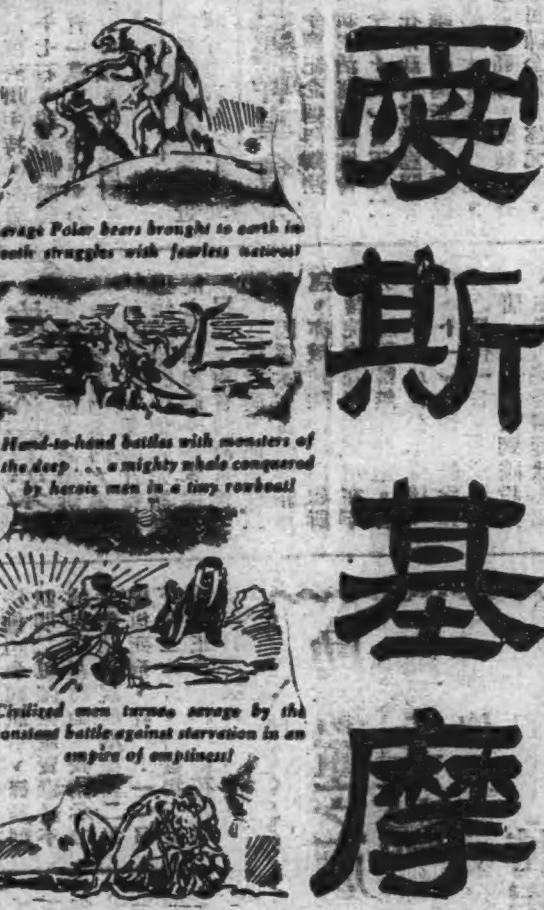 愛斯基摩
avage Polar bears brought to earth in
ooth struggles with fearless natives!
Hand-to-hand battles with monsters of
the deep . . . a mighty whale conquered
by heroic men in a tiny rowboat!
Civilized men turned savage by the
onstant battle against starvation in an
empire of emptiness!